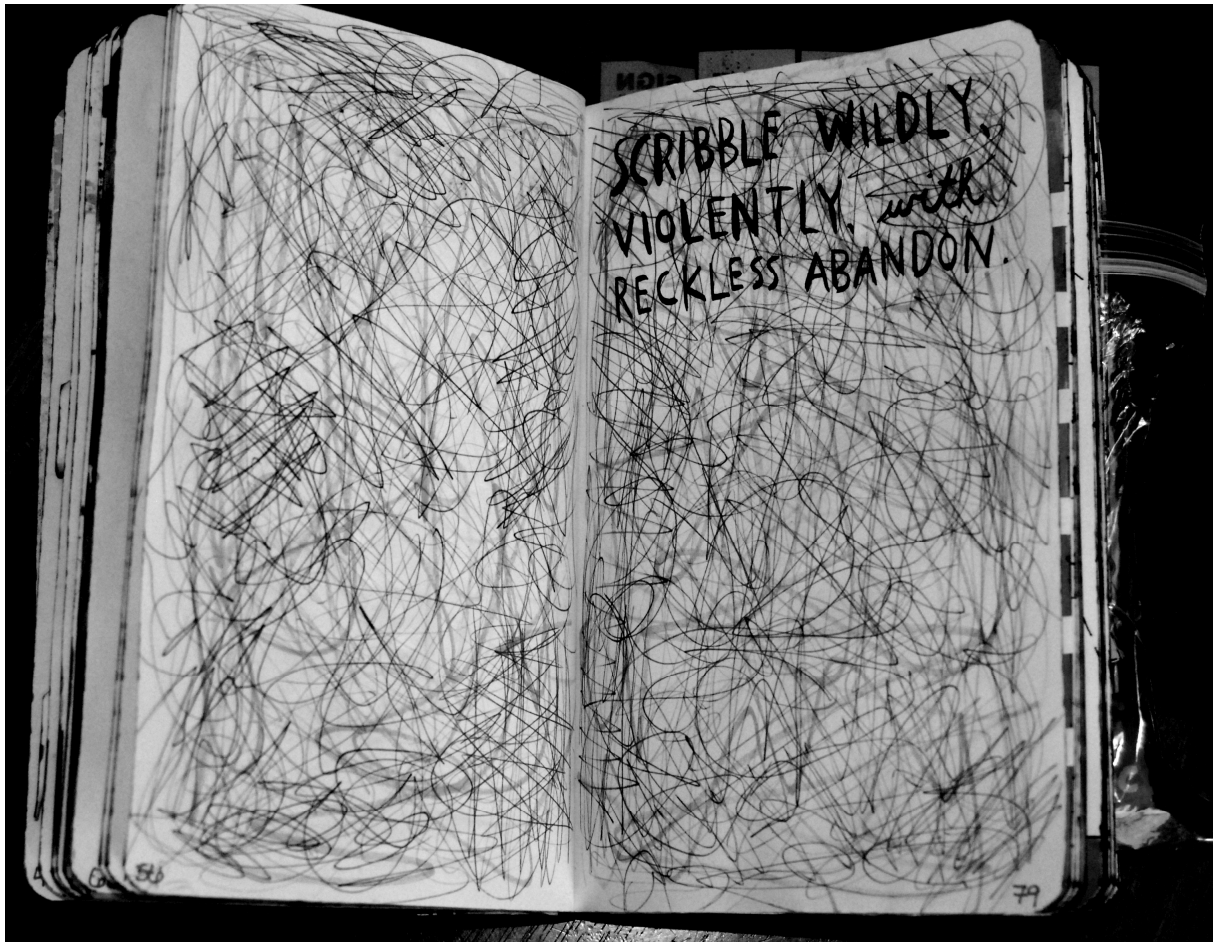 SIGN
SCRIBBLE WILDLY,
VIOLENTLY, with
RECKLESS ABANDON.
79